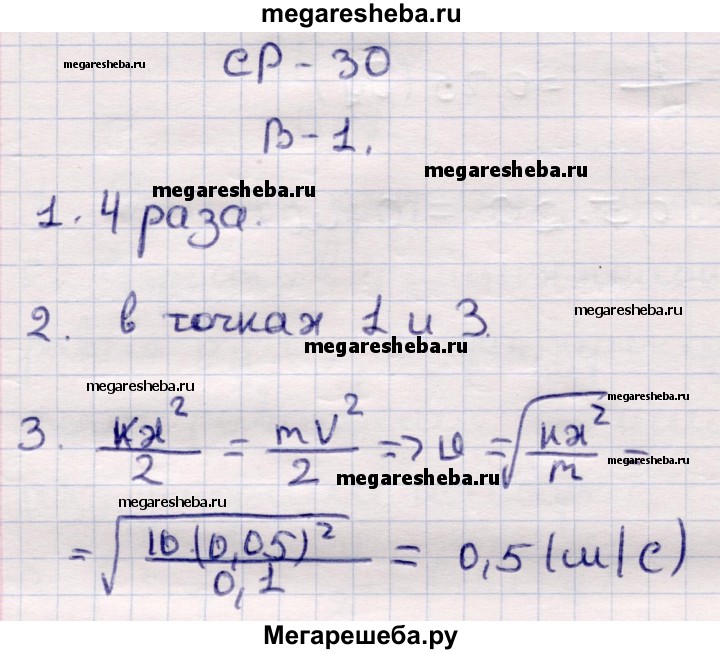 megaresheba.ru
СР - 30
megaresheba.ru
В - 1.
megaresheba.ru
megaresheba.ru
1. 4 раза.
megaresheba.ru
2. в точках 1 и 3.
megaresheba.ru
megaresheba.ru
megaresheba.ru
3. кх²/2 = mv²/2 => υ = √(кх²/m) =
megaresheba.ru
megaresheba.ru
megaresheba.ru
= √(10·(0,05)²/0,1) = 0,5 (м/с)
Мегарешеба.ру